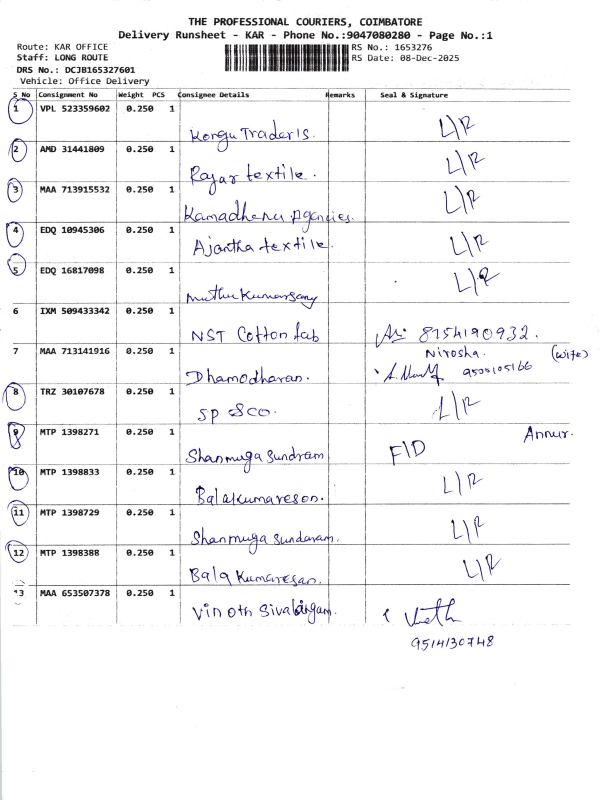 THE PROFESSIONAL COURIERS, COIMBATORE
Delivery Runsheet - KAR - Phone No.:9047080280 - Page No.:1
Route: KAR OFFICE RS No.: 1653276
Staff: LONG ROUTE RS Date: 08-Dec-2025
DRS No.: DCJB165327601
Vehicle: Office Delivery
S No Consignment No Weight PCS Consignee Details Remarks Seal & Signature
1 VPL 523359602 0.250 1
Kongu Traders. L/R
2 AMD 31441809 0.250 1
Rajar textile. L/R
3 MAA 713915532 0.250 1
Kamadhenu Agencies. L/R
4 EDQ 10945306 0.250 1
Ajantha textile. L/R
5 EDQ 16817098 0.250 1
Muthukumarsamy L/R
6 IXM 509433342 0.250 1
NST Cotton fab 8754190932.
7 MAA 713141916 0.250 1 Nirosha. (Wife)
Dhamodharan. 9505105166
8 TRZ 30107678 0.250 1
SP &CO. L/R
9 MTP 1398271 0.250 1 Annur.
Shanmuga Sundram F/D
10 MTP 1398833 0.250 1
Balakumareson. L/R
11 MTP 1398729 0.250 1
Shanmuga Sundaram. L/R
12 MTP 1398388 0.250 1
Bala Kumaresan. L/R
13 MAA 653507378 0.250 1
Vinoth Sivalingam.
9514130748